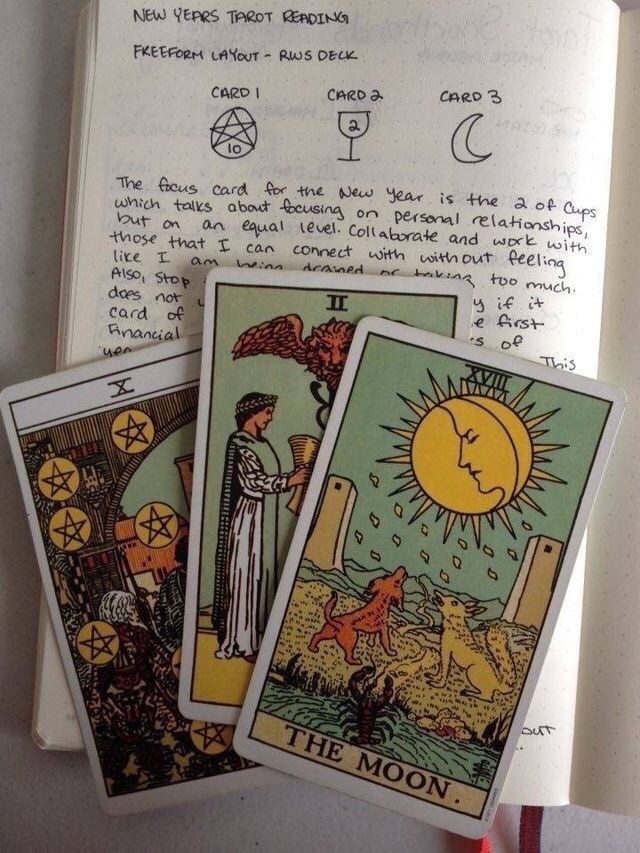 NEW YEARS TAROT READING
FREEFORM LAYOUT - RWS DECK
CARD 1 CARD 2 CARD 3
10 2
The focus card for the New Year is the 2 of Cups
which talks about focusing on personal relationships,
but on an equal level. Collaborate and work with
those that I can connect with without feeling
like I am being drained or taking too much.
Also, stop
does not y if it
card of e first
Financial s of
This
X
II
XVIII
THE MOON.
OUT